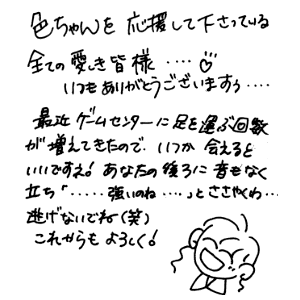 色ちゃんを応援して下さっている
全ての愛しき皆様‥‥♡
いつもありがとうございますぅ‥‥
最近ゲームセンターに足を運ぶ回数
が増えてきたので、いつか会えると
いいですえ！あなたの後ろに音もなく
立ち「‥‥‥強いのね‥‥」とささやくわ…
逃げないでね(笑)
これからもよろしく！